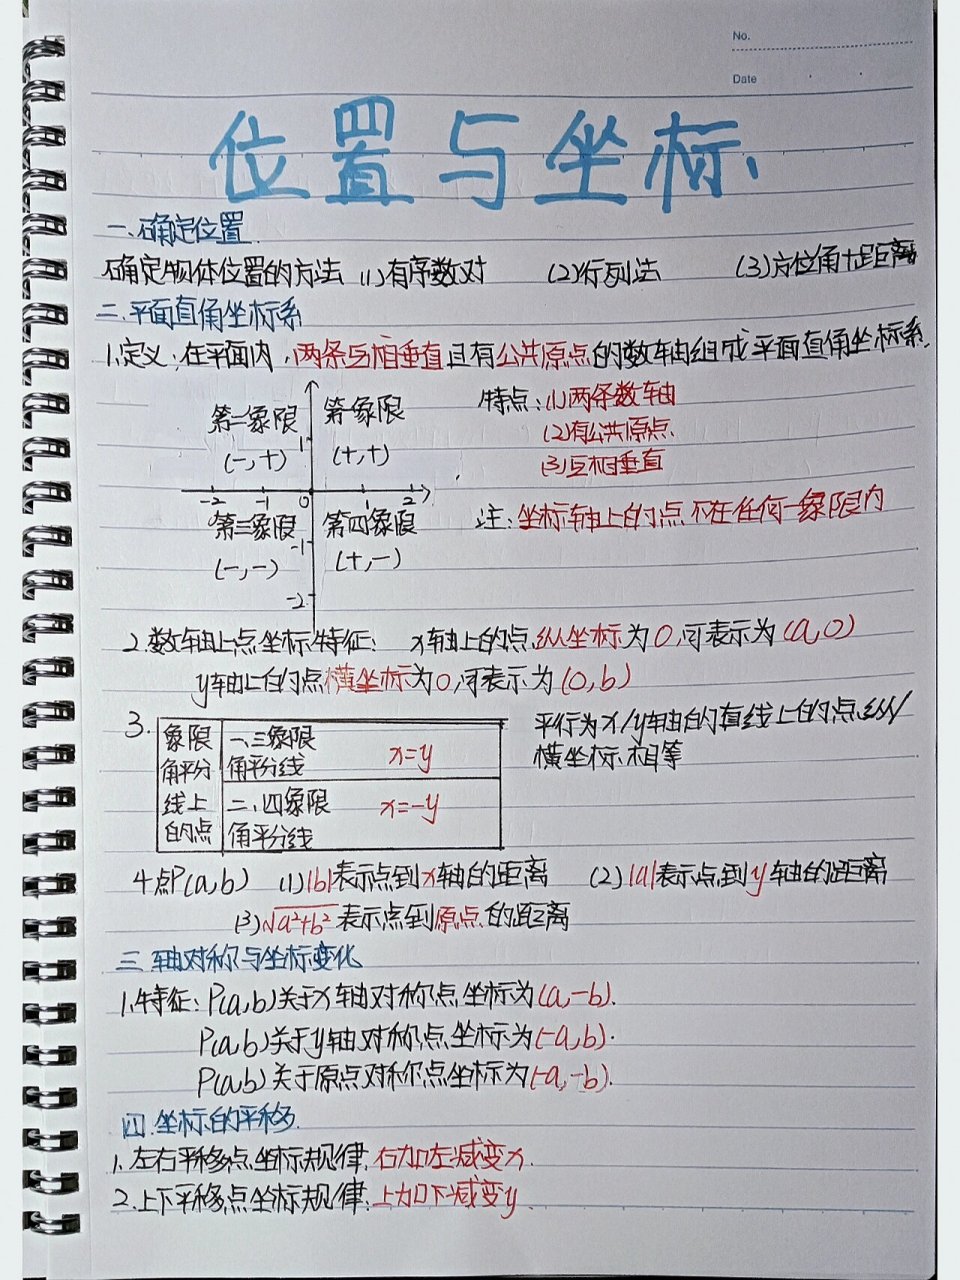 No.
Date
位置与坐标
一.确定位置
确定物体位置的方法 (1)有序数对 (2)行列法 (3)方位角+距离
二.平面直角坐标系
1.定义:在平面内,两条互相垂直且有公共原点的数轴组成平面直角坐标系.
第二象限 第一象限
(-,+) (+,+)
特点:(1)两条数轴
(2)有公共原点
(3)互相垂直
1
-2 -1 0 1 2
第三象限 第四象限
(-,-) (+,-)
-1
-2
注:坐标轴上的点不在任何一象限内
2.数轴上点坐标特征: x轴上的点纵坐标为0,可表示为(a,0)
y轴上的点横坐标为0,可表示为(0,b)
3.
象限
角平分
线上
的点
一、三象限
角平分线 x=y
二、四象限
角平分线 x=-y
平行为x/y轴的直线上的点纵/
横坐标相等
4.点P(a,b) (1)|b|表示点到x轴的距离 (2)|a|表示点到y轴的距离
(3)√a²+b² 表示点到原点的距离
三.轴对称与坐标变化
1.特征:P(a,b)关于x轴对称点坐标为(a,-b).
P(a,b)关于y轴对称点坐标为(-a,b).
P(a,b)关于原点对称点坐标为(-a,-b).
四.坐标的平移
1.左右平移点坐标规律:右加左减变x.
2.上下平移点坐标规律:上加下减变y